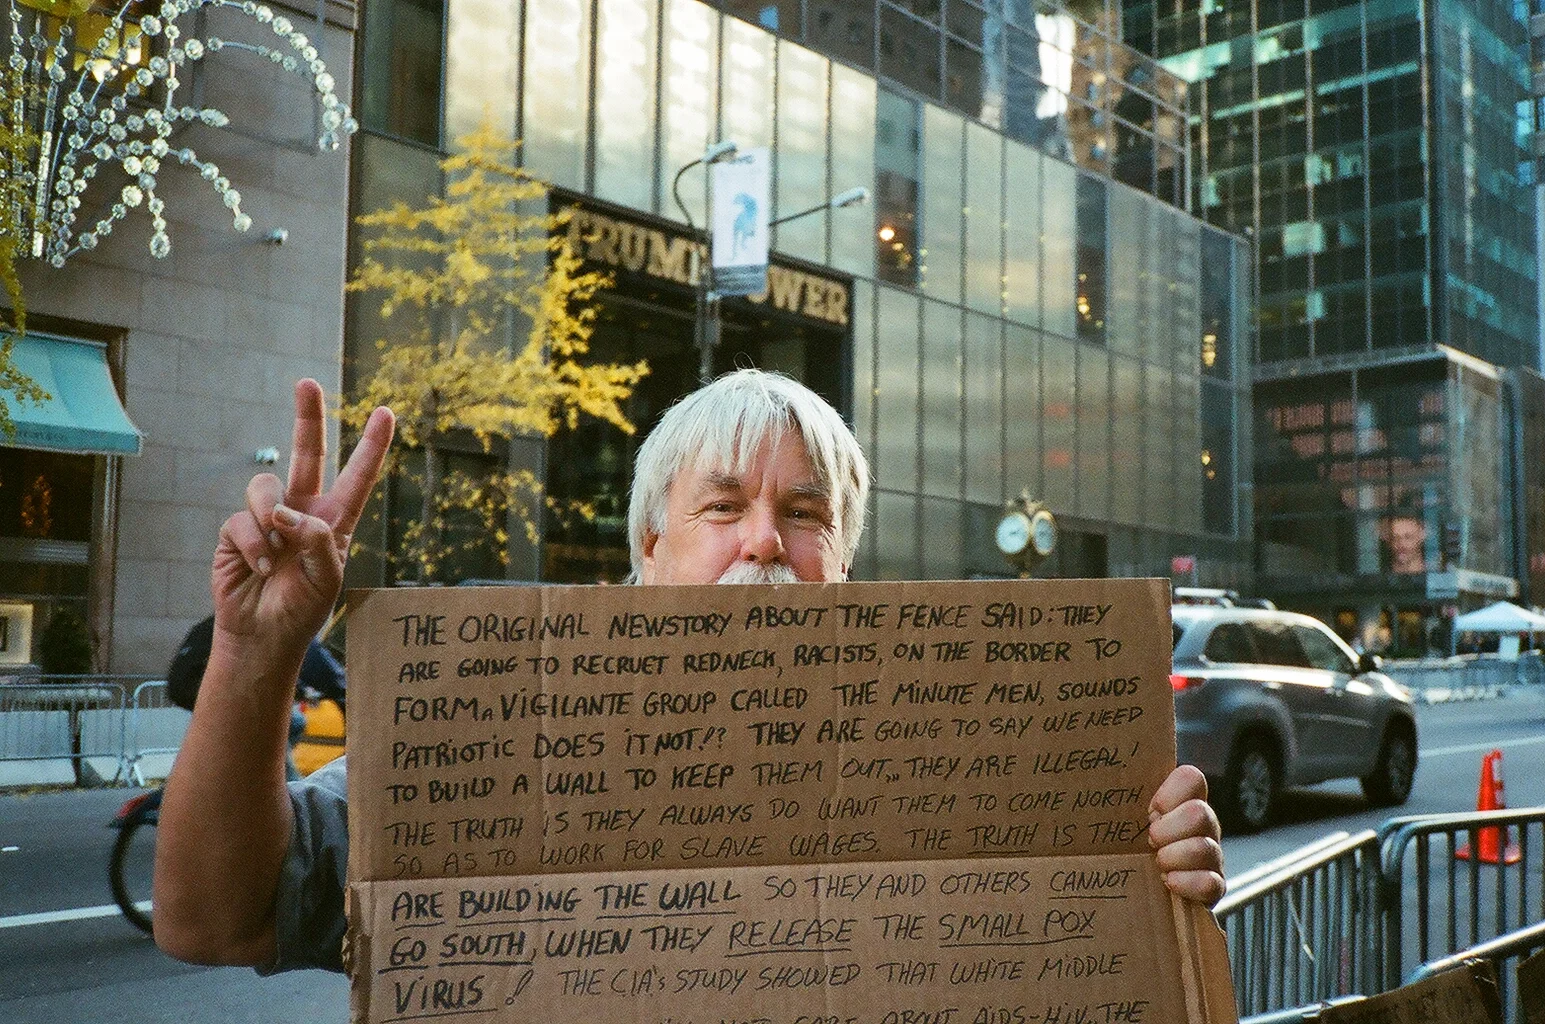 TRUMP TOWER
THE ORIGINAL NEWSTORY ABOUT THE FENCE SAID: THEY
ARE GOING TO RECRUET REDNECK, RACISTS, ON THE BORDER TO
FORM A VIGILANTE GROUP CALLED THE MINUTE MEN, SOUNDS
PATRIOTIC DOES IT NOT!? THEY ARE GOING TO SAY WE NEED
TO BUILD A WALL TO KEEP THEM OUT,,, THEY ARE ILLEGAL!
THE TRUTH IS THEY ALWAYS DO WANT THEM TO COME NORTH
SO AS TO WORK FOR SLAVE WAGES. THE TRUTH IS THEY
ARE BUILDING THE WALL SO THEY AND OTHERS CANNOT
GO SOUTH, WHEN THEY RELEASE THE SMALL POX
VIRUS! THE CIA's STUDY SHOWED THAT WHITE MIDDLE
NOT CARE ABOUT AIDS-HIV, THE